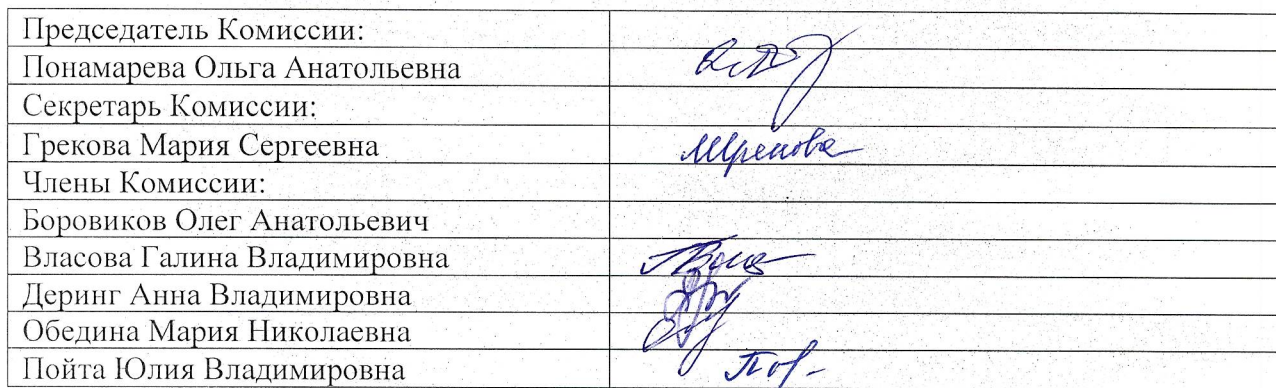 Председатель Комиссии:
Понамарева Ольга Анатольевна
Секретарь Комиссии:
Грекова Мария Сергеевна
Члены Комиссии:
Боровиков Олег Анатольевич
Власова Галина Владимировна
Деринг Анна Владимировна
Обедина Мария Николаевна
Пойта Юлия Владимировна